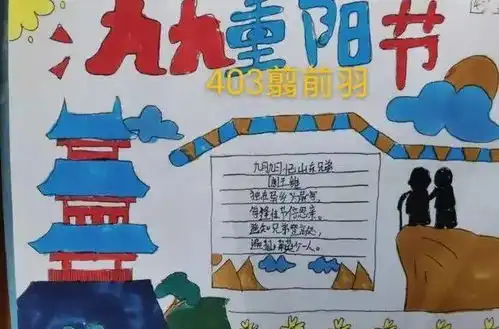 九九重阳节
403翦前羽
九月九日忆山东兄弟
王维
独在异乡为异客,
每逢佳节倍思亲。
遥知兄弟登高处,
遍插茱萸少一人。